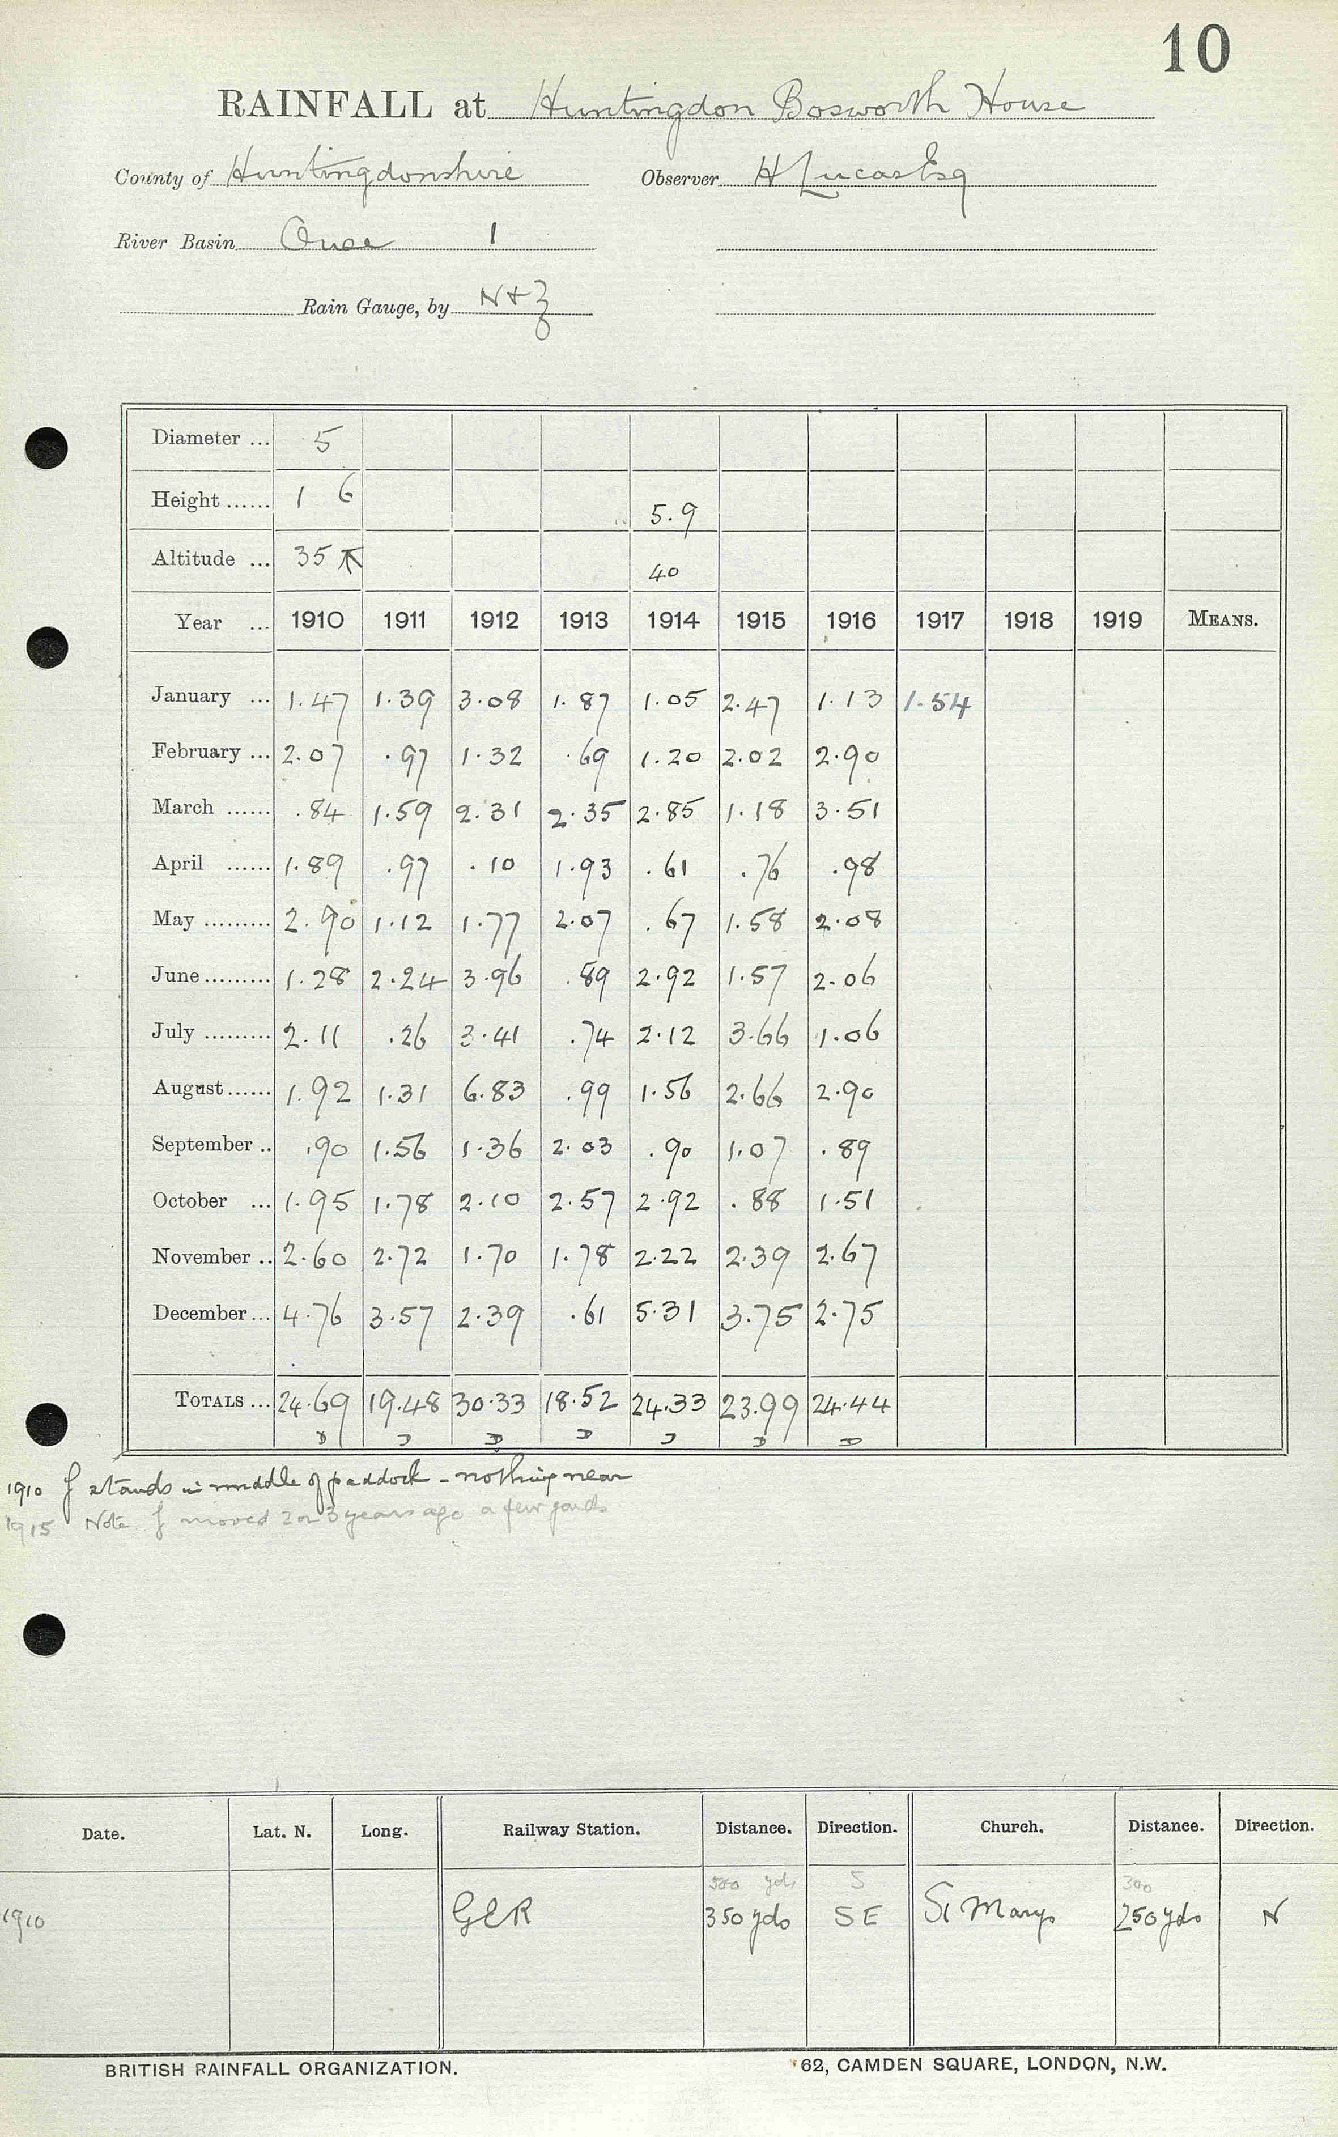 10
RAINFALL at Huntingdon Bosworth House
County of Huntingdonshire Observer H Lucas Esq
River Basin Ouse 1
Rain Gauge, by N+Z
Diameter ... 5
Height ...... 1 6 5.9
Altitude ... 35 40
Year ... 1910 1911 1912 1913 1914 1915 1916 1917 1918 1919 MEANS.
January ... 1.47 1.39 3.08 1.87 1.05 2.47 1.13 1.54
February ... 2.07 .97 1.32 .69 1.20 2.02 2.90
March ...... .84 1.59 2.31 2.35 2.85 1.18 3.51
April ...... 1.89 .97 .10 1.93 .61 .76 .98
May ......... 2.90 1.12 1.77 2.07 .67 1.58 2.08
June ......... 1.28 2.24 3.96 .89 2.92 1.57 2.06
July ......... 2.11 .26 3.41 .74 2.12 3.66 1.06
August ...... 1.92 1.31 6.83 .99 1.56 2.66 2.90
September .. .90 1.56 1.36 2.03 .90 1.07 .89
October ... 1.95 1.78 2.10 2.57 2.92 .88 1.51
November .. 2.60 2.72 1.70 1.78 2.22 2.39 2.67
December ... 4.76 3.57 2.39 .61 5.31 3.75 2.75
TOTALS ... 24.69 19.48 30.33 18.52 24.33 23.99 24.44
1910 g stands in middle of paddock - nothing near
1915 Note g moved 2 or 3 years ago a few yards
Date. Lat. N. Long. Railway Station. Distance. Direction. Church. Distance. Direction.
500 yds S 300
1910 GER 350 yds SE St Marys 250 yds N
BRITISH RAINFALL ORGANIZATION. 62, CAMDEN SQUARE, LONDON, N.W.